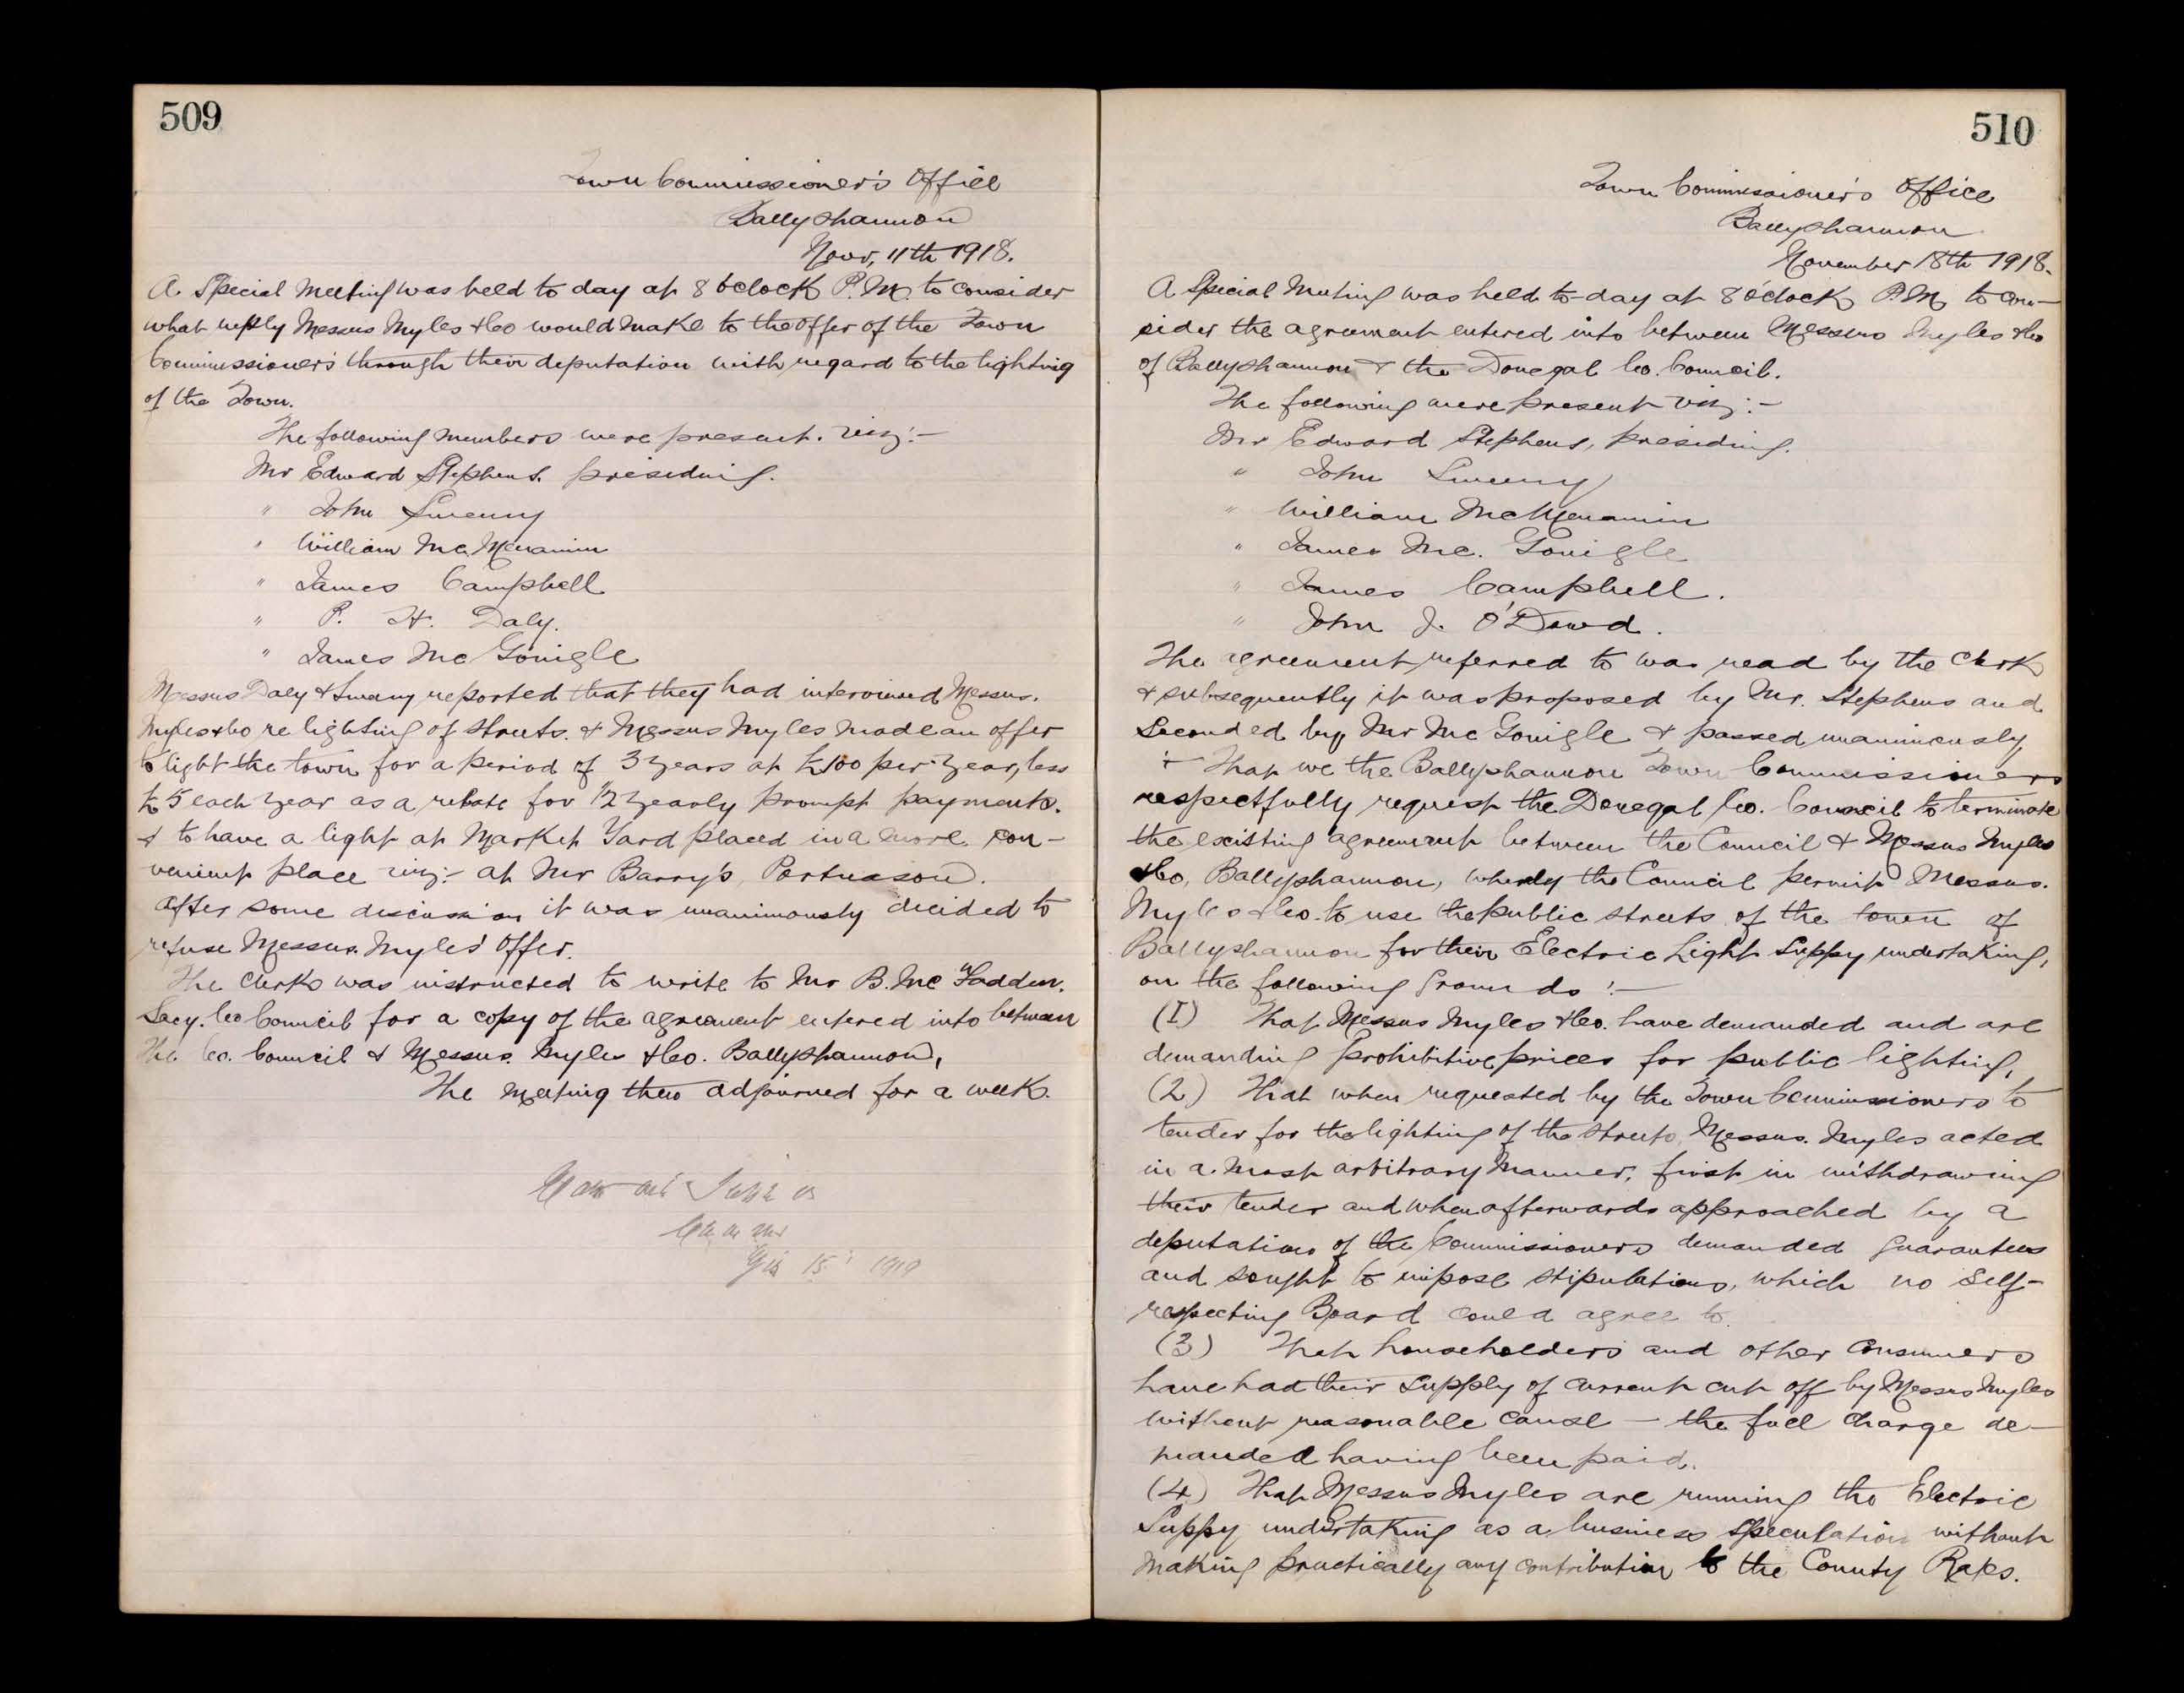 509
Town Commissioner's Office
Ballyshannon
Novr, 11th 1918.
A. Special Meeting was held to day at 8 o'clock P.M. to consider
what reply Messrs Myles & Co would make to the offer of the Town
Commissioners through their deputation with regard to the lighting
of the Town.
The following members were present. viz:-
Mr Edward Stephens. presiding.
" John Sweeny
" William Mc. Menamin
" James Campbell
" P. H. Daly.
" James Mc Gonigle
Messrs Daly & Sweeny reported that they had interviewed Messrs.
Myles & Co re lighting of streets. & Messrs Myles made an offer
to light the town for a period of 3 years at £100 per year, less
£5 each year as a rebate for 1/2 yearly prompt payments.
& to have a light at Market Yard placed in a more con-
venient place viz:- at Mr Barry's, Portnason.
After some discussion it was unanimously decided to
refuse Messrs. Myles' Offer.
The Clerk was instructed to write to Mr B. Mc Fadden.
Secy. Co Council for a copy of the agreement entered into between
the Co. Council & Messrs. Myles & Co. Ballyshannon,
The meeting then adjourned for a week.
510
Town Commissioner's Office
Ballyshannon
November 18th 1918.
A Special Meeting was held to-day at 8 o'clock P.M. to con-
sider the agreement entered into between Messrs Myles & Co
of Ballyshannon & the Donegal Co. Council.
The following were present viz:-
Mr Edward Stephens, presiding.
" John Sweeny
" William McMenamin
" James Mc. Gonigle
" James Campbell.
" John J. O'Dowd.
The agreement referred to was read by the Clerk
& subsequently it was proposed by Mr. Stephens and
Seconded by Mr Mc Gonigle & passed unanimously
That we the Ballyshannon Town Commissioners
respectfully request the Donegal Co. Council to terminate
the existing agreement between the Council & Messrs Myles
& Co, Ballyshannon, whereby the Council permit Messrs.
Myles & Co. to use the public streets of the town of
Ballyshannon for their Electric Light Supply undertaking,
on the following grounds:-
(1) That Messrs Myles & Co. have demanded and are
demanding prohibitive prices for public lighting,
(2) That when requested by the Town Commissioners to
tender for the lighting of the streets, Messrs. Myles acted
in a most arbitrary manner, first in withdrawing
their tender and when afterwards approached by a
deputation of the Commissioners demanded guarantees
and sought to impose stipulations, which no self-
respecting Board could agree to.
(3) That householders and other consumers
have had their supply of current cut off by Messrs Myles
without reasonable cause - the full charge de-
manded having been paid.
(4) That Messrs Myles are running the Electric
Supply undertaking as a business speculation without
making practically any contribution to the County Rates.